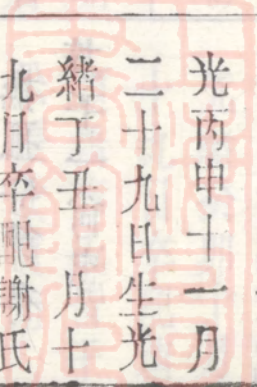 光丙申十一月
二十九日生光
緒丁丑　月十
九日卒配謝氏